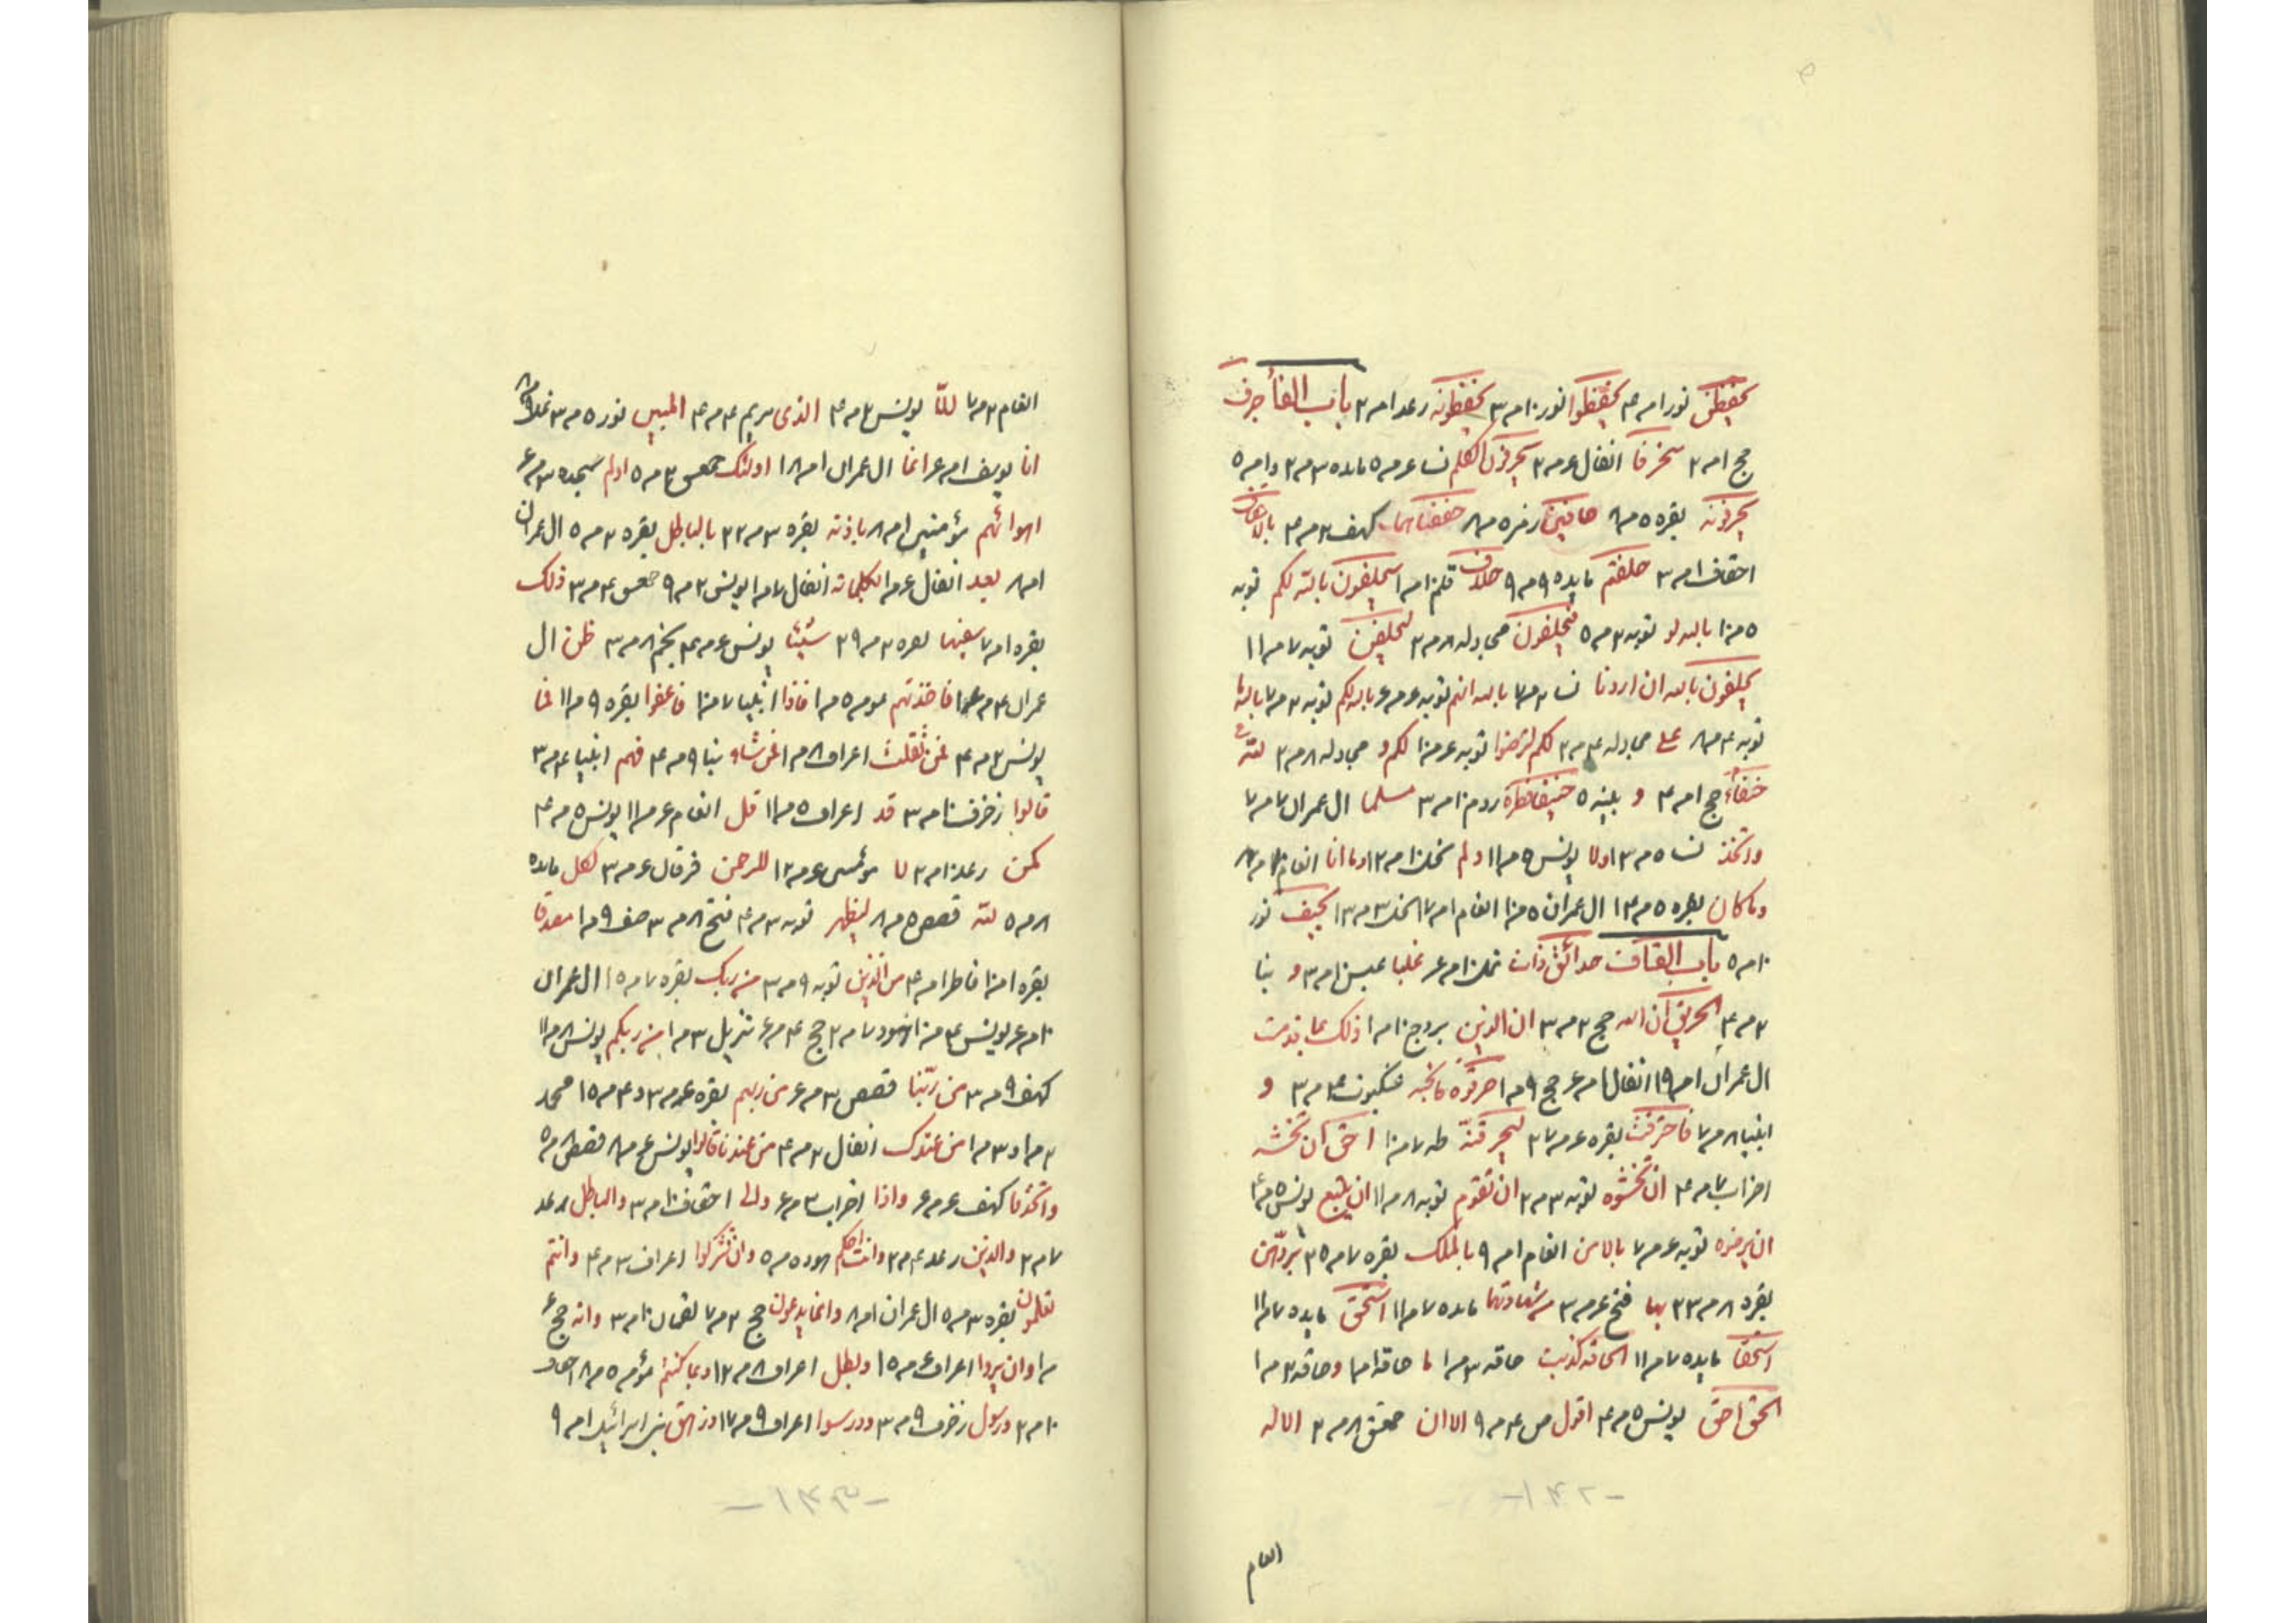 یحفظن نور ا م ۴ یحفظوا نور ۱۰ م ۳ یحفظونه رعد ا م ۲ باب الفا حرف
حج ا م ۲ متحرفا انفال ع م ۲ یحرفون الکلم نسا ع م ۵ مایده ۳ م ۲ و ا م ۵
یحرفونه بقره ۵ م ۸ حافین زمر ۵ م ۸ حففناهما کهف ۲ م ۴ بالاحقاف
احقاف ا م ۳ حلفتم مایده ۹ م ۹ حلاف قلم ا م ا سیحلفون بالله لکم توبه
۵ م ۱۰ بالله لو توبه ۳ م ۵ فیحلفون مجادله ۸ م ۲ لیحلفن توبه ۷ م ۱۱
یحلفون بالله ان اردنا نسا ۲ م ۷ بالله انهم توبه ع م ع بالله لکم توبه ۲ م ۷ بالله ما
توبه ۴ م ۸ علی مجادله ۴ م ۲ لکم لترضوا توبه ع م ۱۰ لکم و مجادله ۸ م ۲ لله
حنفاء حج ا م ۴ و بینه ۵ حنیفا فطره روم ۱۰ م ۳ مسلما ال عمران ۷ م ۷
واتخذ نسا ۵ م ۱۳ ولا یونس ۵ م ۱۱ ولم نحل ۱۰ م ۱۲ وما انا انعام
وماکان بقره ۵ م ۱۴ ال عمران ۵ م ۱۰ انعام ا م ۷ النحل ۳ م ۱۳ یحیف نور
۱۰ م ۵ باب القاف حدائق ذات نمل ۱۰ م ع غلبا عبس ۱۰ م ۳ و نبا
۲ م ۴ الحریق ان الله حج ۲ م ۳ ان الذین بروج ۱۰ م ا ذلک بما قدمت
ال عمران ا م ۱۹ انفال م ع حج ۹ م ا حرقوه فانجه عنکبوت ۴ م ۳ و
انبیا ۸ م ۷ فاحترقت بقره ع م ۲۷ لنحرقنه طه ۷ م ۱۰ احق ان تخشه
احزاب ۷ م ۴ ان تخشوه توبه ۳ م ۲ ان تقوم توبه ۸ م ۱۱ ان یتبع یونس ۵ م ۴
ان یرضوه توبه ع م ۷ بالامن انعام ا م ۹ بالملک بقره ۷ م ۳۵ بردهن
بقره ۸ م ۲۳ بها فتح ع م ۳ من شهادتهما مایده ۷ م ۱۱ استحق مایده ۷ م ۱۱
استحقا مایده ۷ م ۱۱ الحاقه کذبت حاقه ۳ م ا ما حاقه ا م ا وحاقه ۲ م ا
الحق احق یونس ۵ م ۴ اقول ص ۴ م ۹ الا ان ۸ م ۲ الا له
-۱۴۲-
انعام
انعام ۲ م ۷ للا یونس ۲ م ۴ الذی مریم ۴ م ۴ المبین نور ۵ م ۳ نمل
انا یوسف ا م ع انما ال عمران ا م ۱۸ اولئک قصص ۲ م ۵ اولم سجده ۳ م ع
اهوائهم مؤمنین ا م ۸ باذنه بقره ۳ م ۲۲ بالباطل بقره ۲ م ۵ ال عمران
ا م ۸ بعد انفال ع م ا بکلماته انفال ۷ م ا یونس ۲ م ۹ قصص ۴ م ۳ ذلک
بقره ا م ۷ سفیها بقره ۲ م ۲۹ شیئا یونس ع م ۴ نجم ۸ م ۳ ظن ال
عمران ۴ م ع فاخذتهم مومن ۵ م ا فاذا انبیا ۷ م ۱۰ فاعفوا بقره ۹ م ۱۱ فما
یونس ۲ م ۴ فمن ثقلت اعراف ۸ م ا فمن شاء نبا ۹ م ۴ فهم انبیا ۴ م ۳
قالوا زخرف ۱۰ م ۳ قد اعراف ۵ م ۱۱ قل انعام ع م ۱۱ یونس ۵ م ۴
کمن رعد ۱۰ م ۲ لا مؤمن ع م ۱۲ للرحمن فرقان ع م ۳ لکل مایده
۸ م ۵ لله قصص ۵ م ۸ لیظهر توبه ۳ م ۴ فتح ۸ م ۳ صف ۹ م ا مصدقا
بقره ا م ۱۰ فاطر ا م ۴ من الذین توبه ۹ م ۳ من ربک بقره ۷ م ۱۵ ال عمران
۱۰ م ع یونس ۴ م ۱۰ هود ۷ م ۲ حج ۴ م ع تنزیل ۳ م ا من ربکم یونس ۸ م ۱۱
کهف ۹ م ۳ من ربنا قصص ۳ م ع من ربهم بقره ع م ۳ و ۴ م ۱۵ محمد
۲ م ا و ۳ م ا من عندک انفال ۲ م ۴ من عندنا قالوا یونس ع م ۸ قصص ۸ م ۵
واتخذوا کهف ع م ع واذا احزاب ۳ م ع والی احقاف ۱۰ م ۳ والباطل رعد
۷ م ۲ والذین رعد ۴ م ۲ وانت احکم هود ۵ م ۵ وان تشرکوا اعراف ۳ م ۴ وانتم
تعلمون بقره ۳ م ۵ ال عمران ا م ۸ وانما یدعون حج ۲ م ۷ لقمان ۱۰ م ۳ وانه حج ع
م ا وان یروا اعراف ع م ۱۵ وبطل اعراف ۸ م ۱۲ وبما کنتم مؤمن ۵ م ۸ احقاف
۱۰ م ۲ ورسول زخرف ۹ م ۳ ودرسوا اعراف ۹ م ۱۷ وزهق بنی اسرائیل ا م ۹
-۱۴۳-